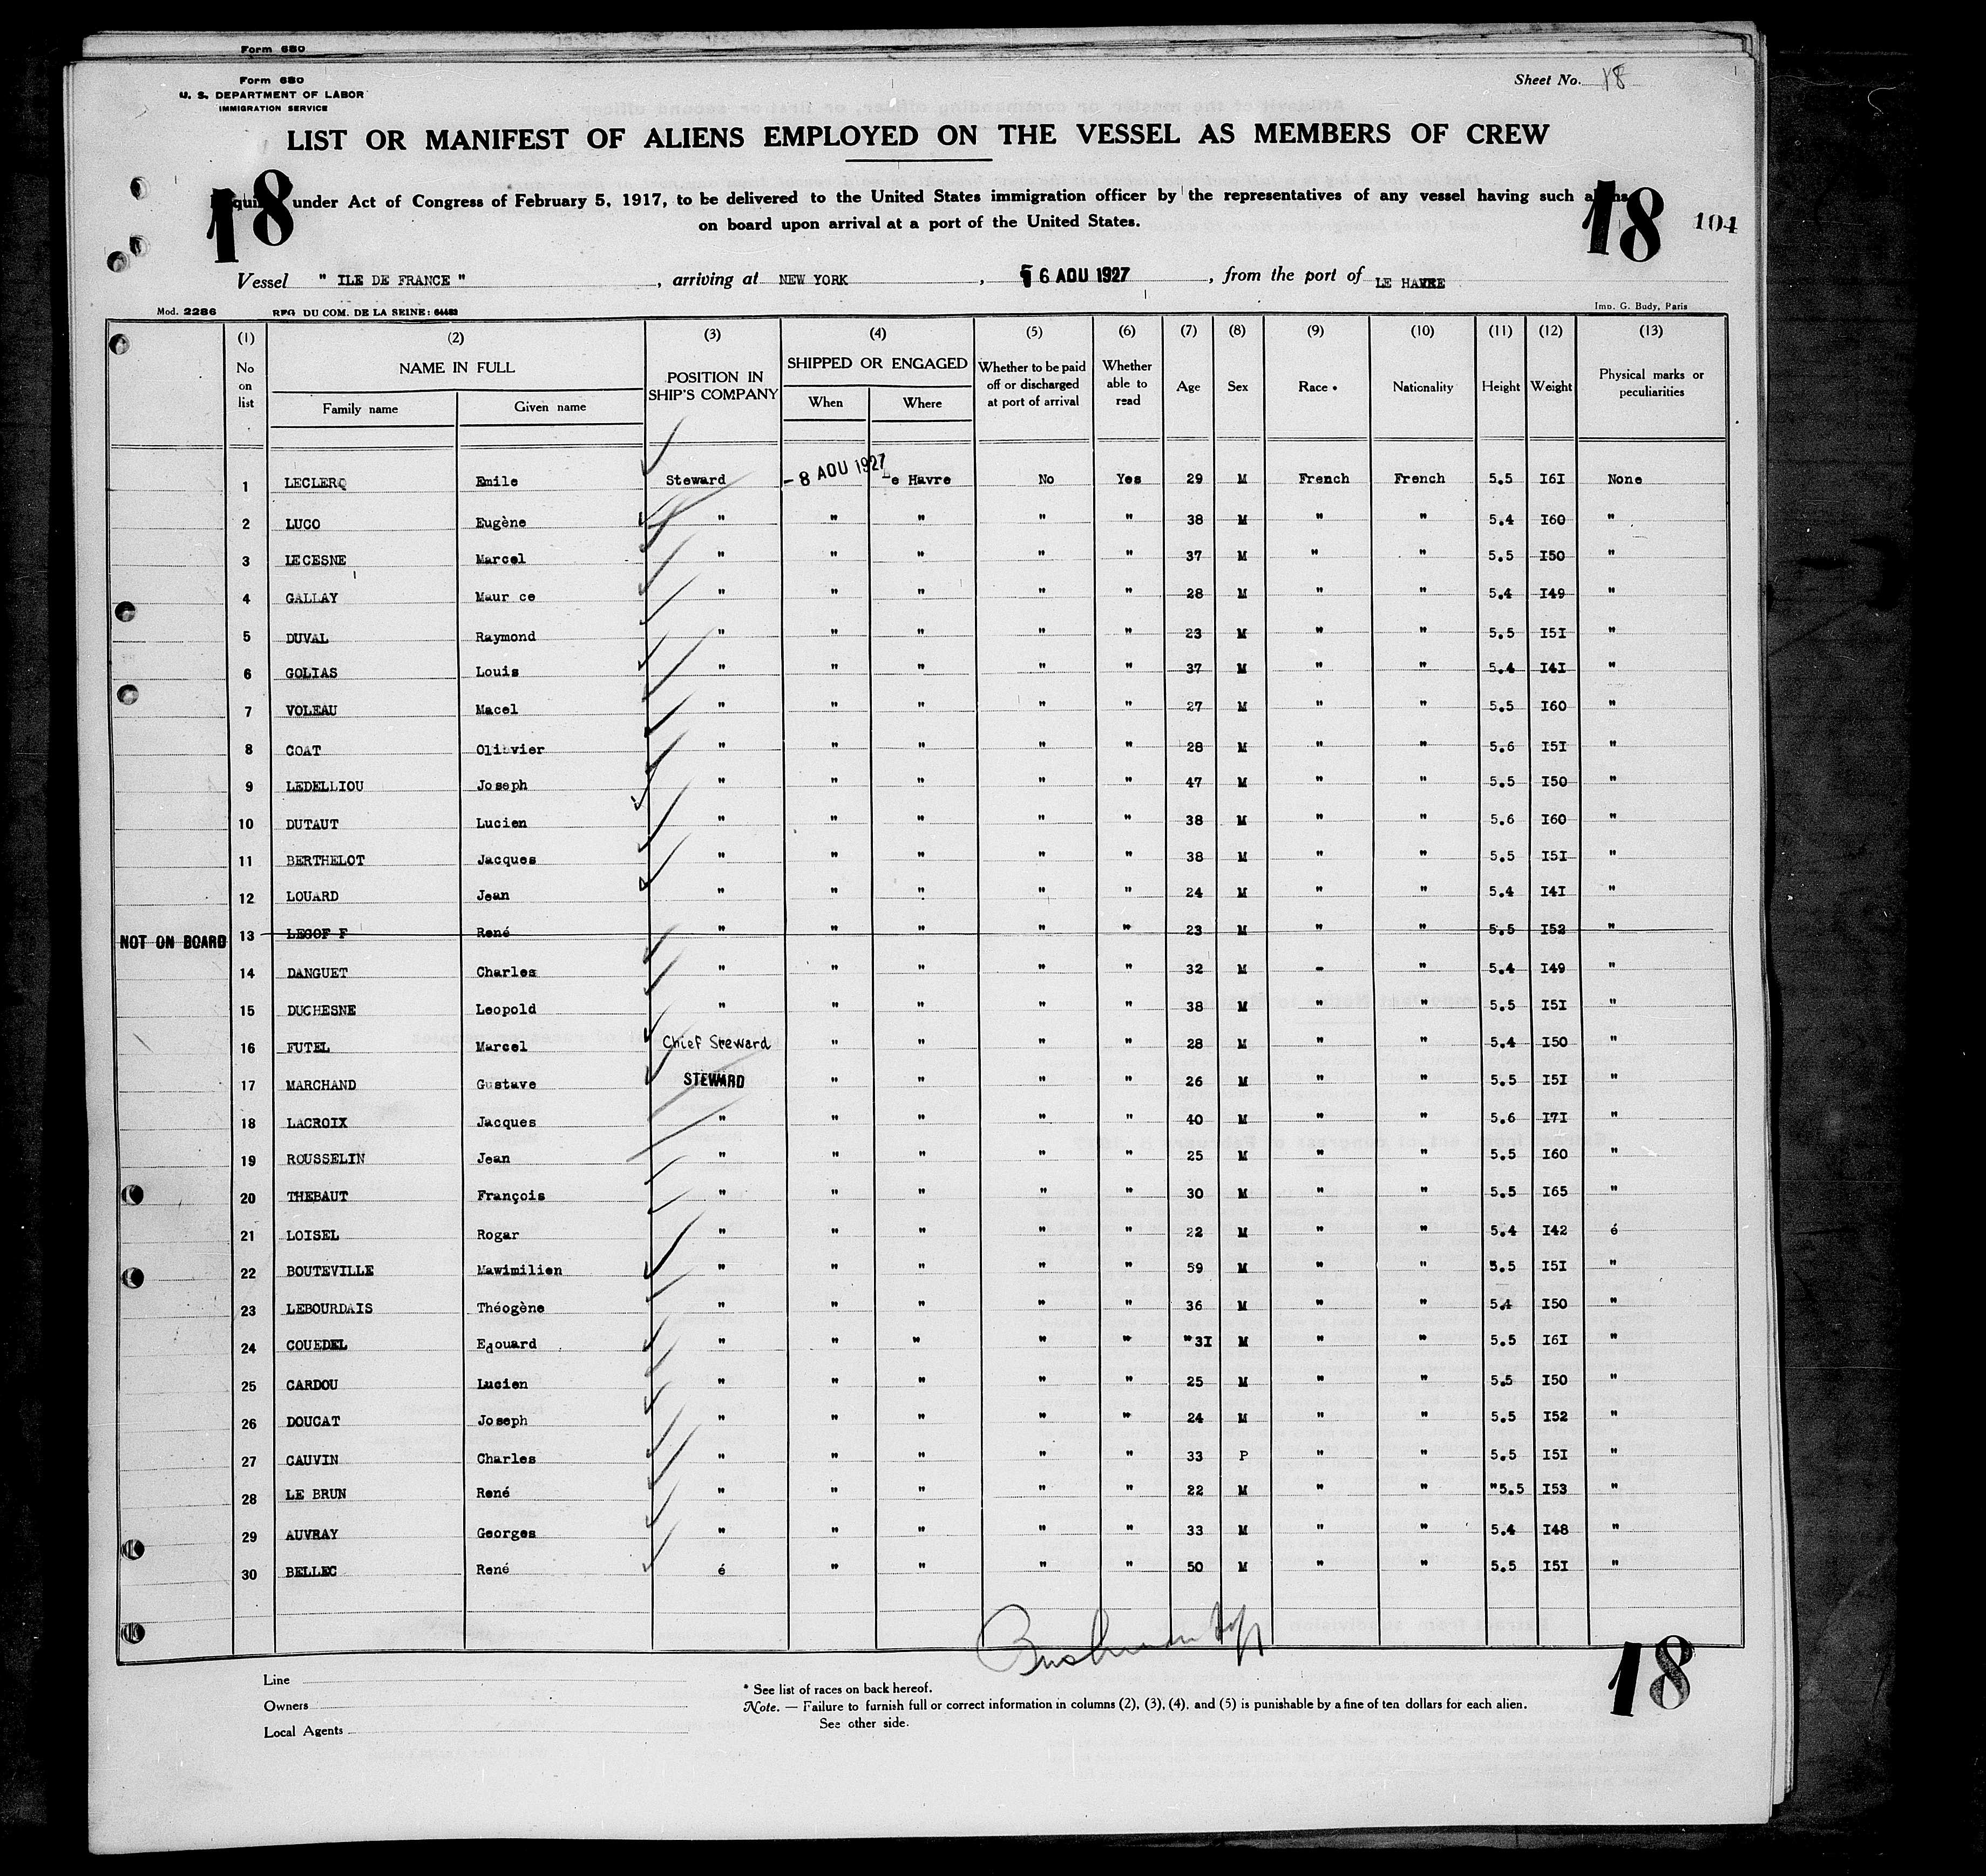 Form 680
Form 680
U. S. DEPARTMENT OF LABOR
IMMIGRATION SERVICE
Sheet No. 18
LIST OR MANIFEST OF ALIENS EMPLOYED ON THE VESSEL AS MEMBERS OF CREW
18 under Act of Congress of February 5, 1917, to be delivered to the United States immigration officer by the representatives of any vessel having such 18 104
on board upon arrival at a port of the United States.
Vessel " ILE DE FRANCE " , arriving at NEW YORK , 6 AOU 1927 , from the port of LE HAVRE
Mod. 2286 REG. DU COM. DE LA SEINE: 64483 Imp. G. Budy, Paris
(1) (2) (3) (4) (5) (6) (7) (8) (9) (10) (11) (12) (13)
No on list NAME IN FULL POSITION IN SHIP'S COMPANY SHIPPED OR ENGAGED Whether to be paid off or discharged at port of arrival Whether able to read Age Sex Race • Nationality Height Weight Physical marks or peculiarities
Family name Given name When Where
1 LECLERQ Emile Steward - 8 AOU 1927 Le Havre No Yes 29 M French French 5.5 I6I None
2 LUCO Eugène " " " " " 38 M " " 5.4 I60 "
3 LECESNE Marcel " " " " " 37 M " " 5.5 I50 "
4 GALLAY Maur ce " " " " " 28 M " " 5.4 I49 "
5 DUVAL Raymond " " " " " 23 M " " 5.5 I5I "
6 GOLIAS Louis " " " " " 37 M " " 5.4 I4I "
7 VOLEAU Macel " " " " " 27 M " " 5.5 I60 "
8 COAT Oliavier " " " " " 28 M " " 5.6 I5I "
9 LEDELLIOU Joseph " " " " " 47 M " " 5.5 I50 "
10 DUTAUT Lucien " " " " " 38 M " " 5.6 I60 "
11 BERTHELOT Jacques " " " " " 38 M " " 5.5 I5I "
12 LOUARD Jean " " " " " 24 M " " 5.4 I4I "
NOT ON BOARD 13 LEGOF F René " " " " " 23 M " " 5.5 I52 "
14 DANGUET Charles " " " " " 32 M - " 5.4 I49 "
15 DUCHESNE Leopold " " " " " 38 M " " 5.5 I5I "
16 FUTEL Marcel Chief Steward " " " " 28 M " " 5.4 I50 "
17 MARCHAND Gustave STEWARD " " " " 26 M " " 5.5 I5I "
18 LACROIX Jacques " " " " " 40 M " " 5.6 I7I "
19 ROUSSELIN Jean " " " " " 25 M " " 5.5 I60 "
20 THEBAUT François " " " " " 30 M " " 5.5 I65 "
21 LOISEL Rogar " " " " " 22 M " " 5.4 I42 é
22 BOUTEVILLE Mawimilien " " " " " 59 M " " 5.5 I5I "
23 LEBOURDAIS Théogène " " " " " 36 M " " 5.4 I50 "
24 COUEDEL Edouard " " " " " "3I M " " 5.5 I6I "
25 CARDOU Lucien " " " " " 25 M " " 5.5 I50 "
26 DOUCAT Joseph " " " " " 24 M " " 5.5 I52 "
27 CAUVIN Charles " " " " " 33 P " " 5.5 I5I "
28 LE BRUN René " " " " " 22 M " " "5.5 I53 "
29 AUVRAY Georges " " " " " 33 M " " 5.4 I48 "
30 BELLEC René é " " " " 50 M " " 5.5 I5I "
Line
Owners
Local Agents
* See list of races on back hereof.
Note. — Failure to furnish full or correct information in columns (2), (3), (4), and (5) is punishable by a fine of ten dollars for each alien.
See other side.
18